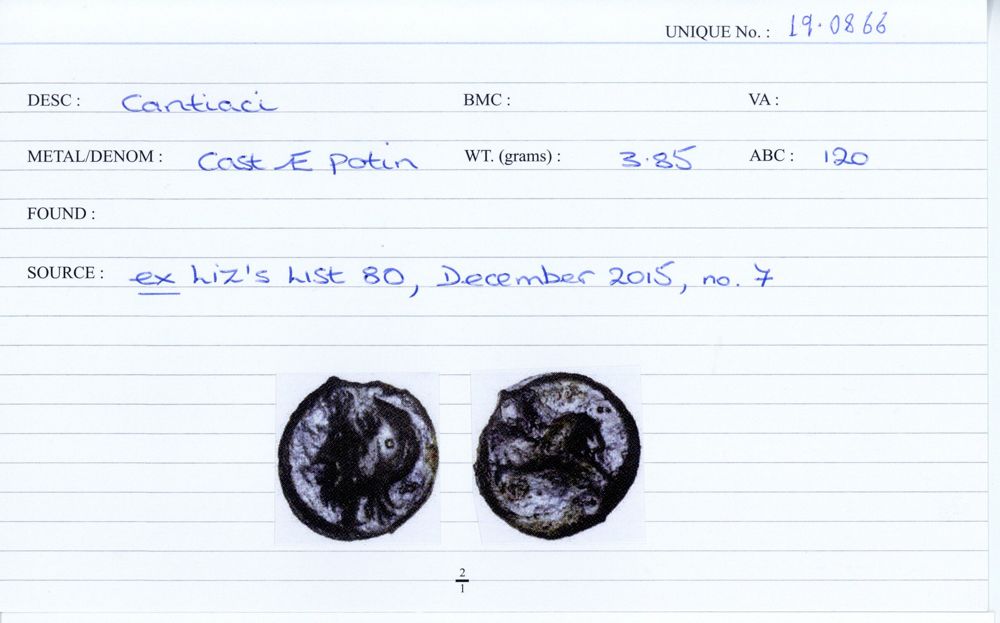 UNIQUE No. : 19.0866
DESC : Cantiaci BMC : VA :
METAL/DENOM : Cast Æ Potin WT. (grams) : 3.85 ABC : 120
FOUND :
SOURCE : ex Liz's List 80, December 2015, no. 7
2
1